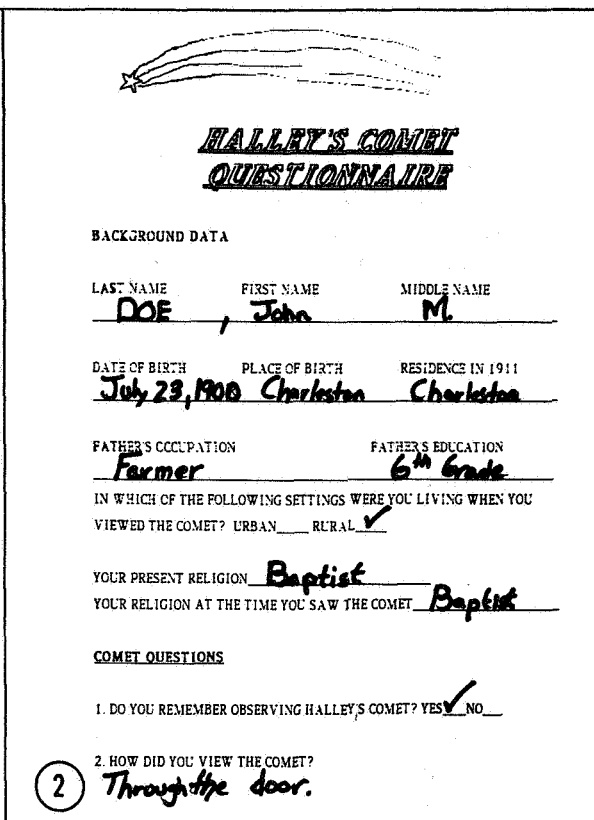 HALLEY'S COMET
QUESTIONNAIRE
BACKGROUND DATA
LAST NAME FIRST NAME MIDDLE NAME
DOE, John M.
DATE OF BIRTH PLACE OF BIRTH RESIDENCE IN 1911
July 23, 1900 Charleston Charleston
FATHER'S OCCUPATION FATHER'S EDUCATION
Farmer 6th Grade
IN WHICH OF THE FOLLOWING SETTINGS WERE YOU LIVING WHEN YOU
VIEWED THE COMET? URBAN____ RURAL ✓
YOUR PRESENT RELIGION Baptist
YOUR RELIGION AT THE TIME YOU SAW THE COMET Baptist
COMET QUESTIONS
1. DO YOU REMEMBER OBSERVING HALLEY'S COMET? YES ✓ NO___
2. HOW DID YOU VIEW THE COMET?
2 Through the door.